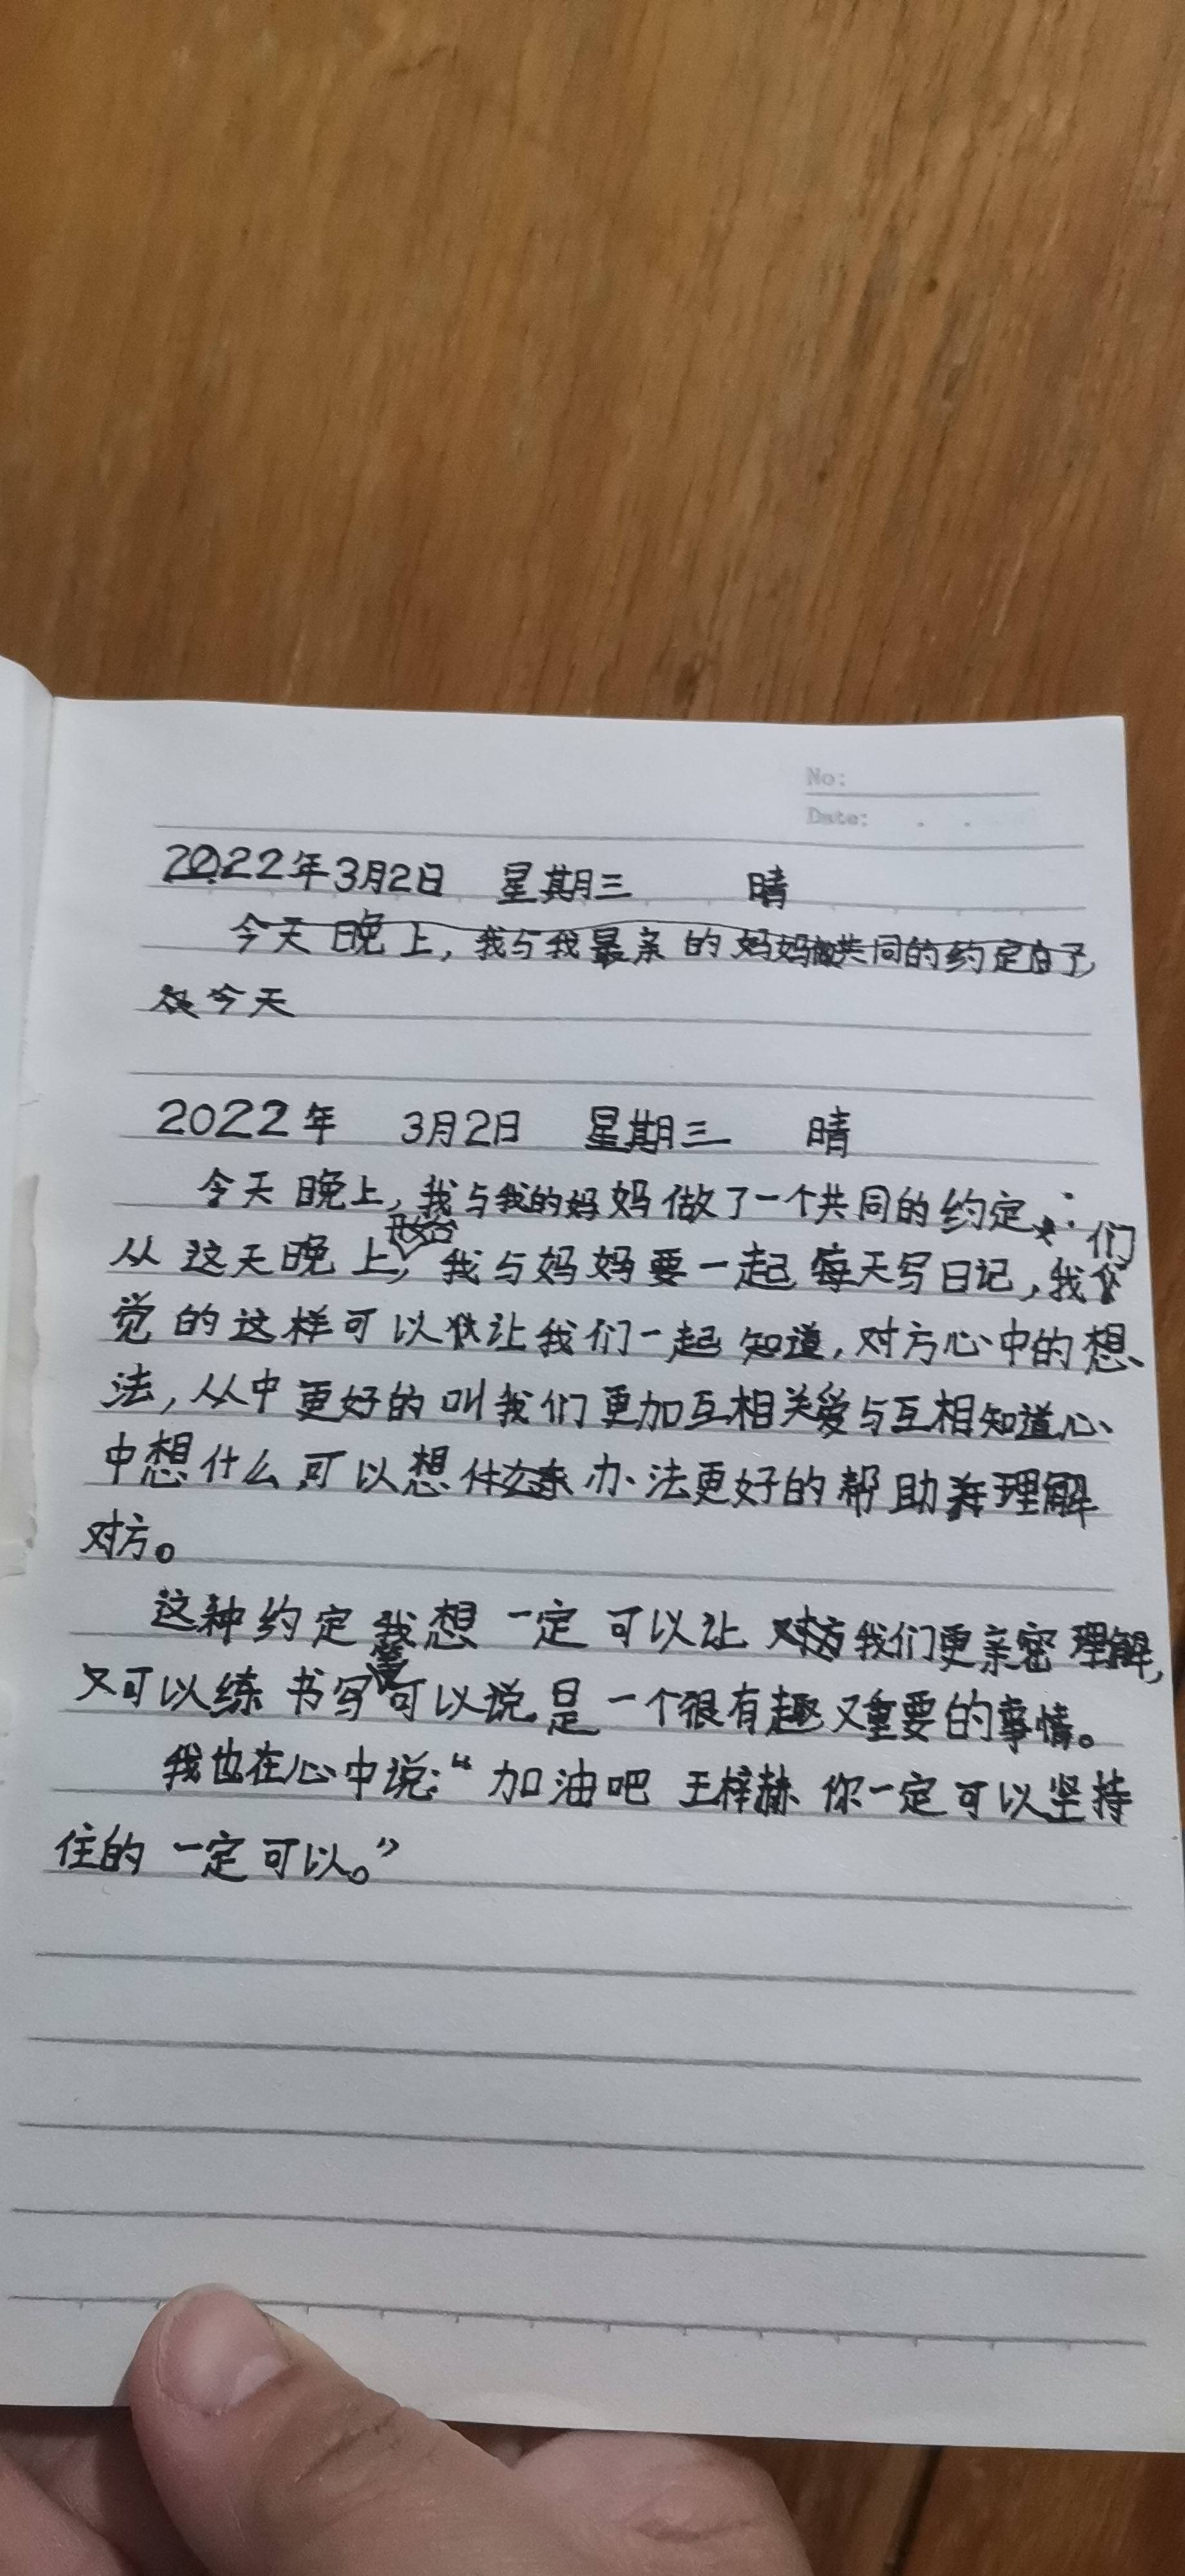 No:
Date: . .
2022年3月2日 星期三 晴
今天晚上，我与我最亲的妈妈做共同的约定
今天
2022年 3月2日 星期三 晴
今天晚上，我与我的妈妈做了一个共同的约定：
从这天晚上开始，我与妈妈要一起每天写日记，我们
觉的这样可以让我们一起知道，对方心中的想
法，从中更好的叫我们更加互相关爱与互相知道心
中想什么，可以想办法更好的帮助并理解
对方。
这种约定我想一定可以让我们更亲密理解，
又可以练书写可以说是一个很有趣又重要的事情。
我也在心中说：“加油吧 王梓赫 你一定可以坚持
住的 一定可以。”